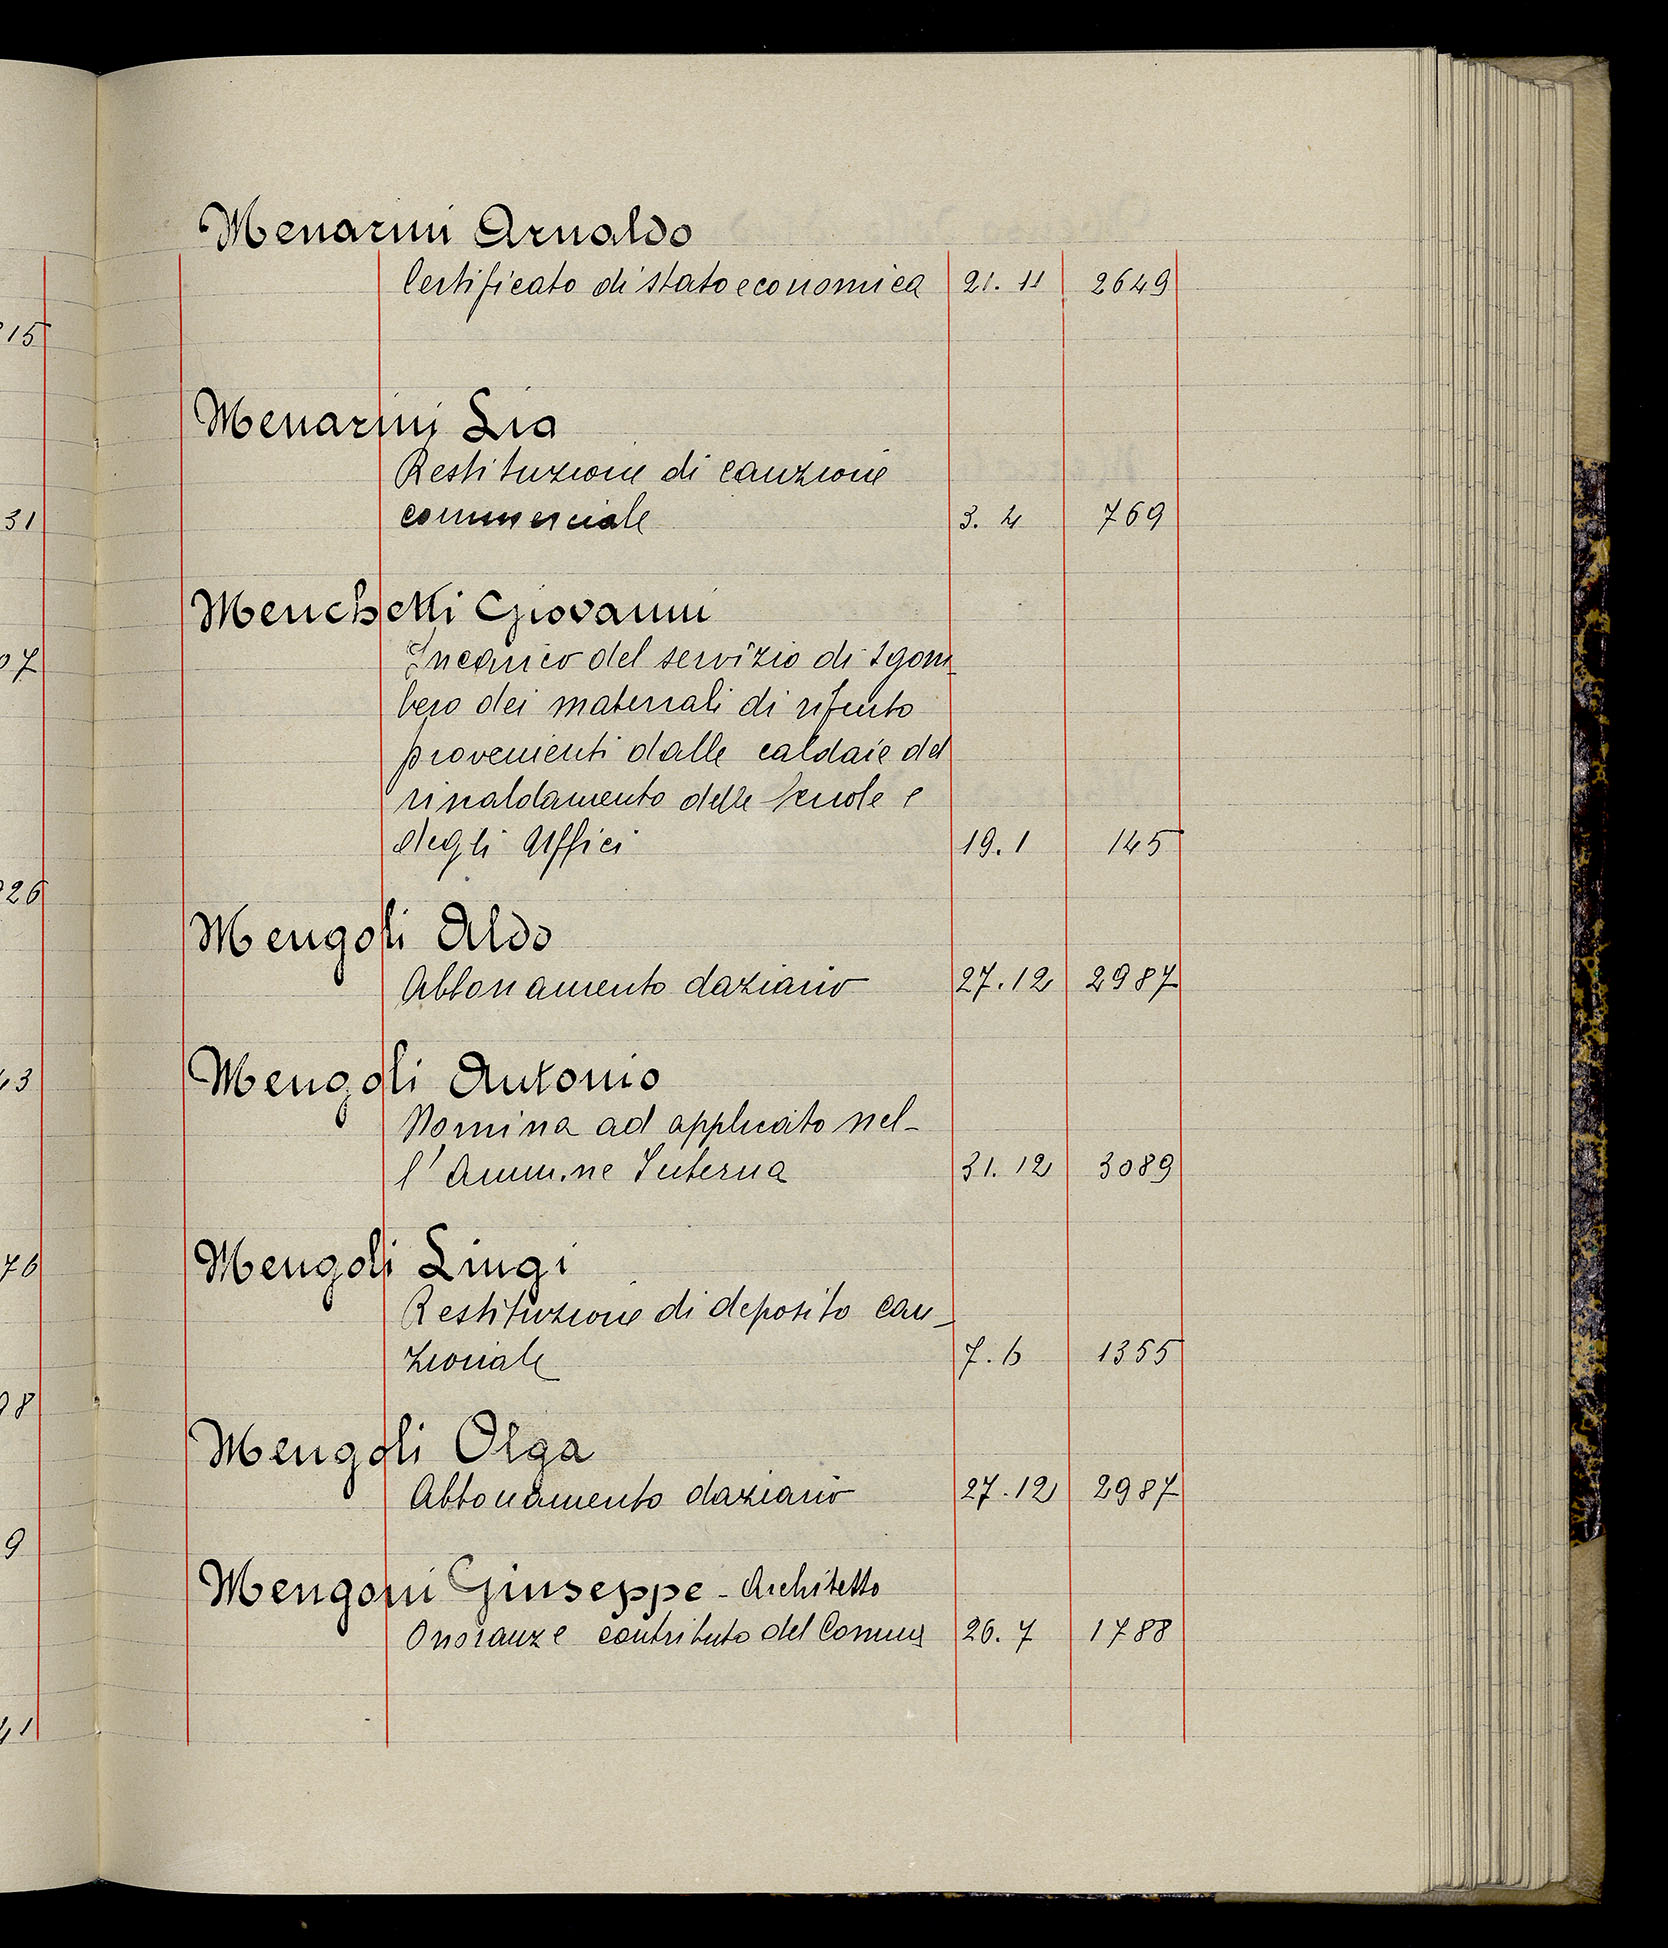 15
31
07
26
43
76
98
9
41
Menarini Arnaldo
Certificato di stato economica 21. 11 2649
Menarini Lia
Restituzione di cauzione
commerciale 3. 4 769
Menchetti Giovanni
Incarico del servizio di sgom-
bero dei materiali di rifiuto
provenienti dalle caldaie del
riscaldamento delle Scuole e
degli Uffici 19. 1 145
Mengoli Aldo
Abbonamento daziario 27. 12 2987
Mengoli Antonio
Nomina ad applicato nel-
l'Amm.ne Interna 31. 12 3089
Mengoli Luigi
Restituzione di deposito cau-
zionale 7. 6 1355
Mengoli Olga
Abbonamento daziario 27. 12 2987
Mengoni Giuseppe - Architetto
Onoranze contributo del Comune 26. 7 1788